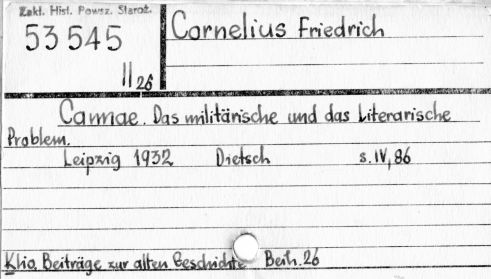 Zakł. Hist. Powsz. Staroż.
53 545
II 26
Cornelius Friedrich
Cannae. Das militärische und das literarische
Problem.
Leipzig 1932 Dietsch s. IV, 86
Klio. Beiträge zur alten Geschichte Beih. 26